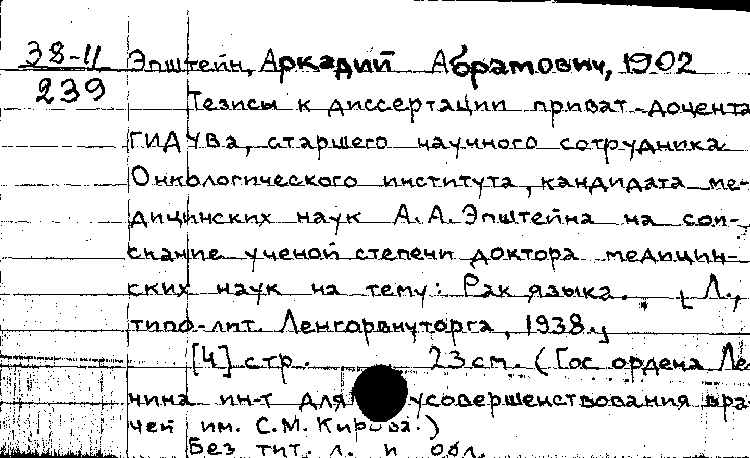 38-11
239
Эпштейн, Аркадий Абрамович, 1902
Тезисы к диссертации приват-доцента
ГИДУВа, старшего научного сотрудника
Онкологического института, кандидата ме-
дицинских наук А.А. Эпштейна на сои-
скание ученой степени доктора медицин-
ских наук на тему: Рак языка. Л.,
типо-лит. Ленгорвнуторга, 1938.
[4] стр. 23 см. (Гос ордена Ле
нина ин-т для усовершенствования вра
чей им. С.М. Кирова.)
Без тит. л. и обл.